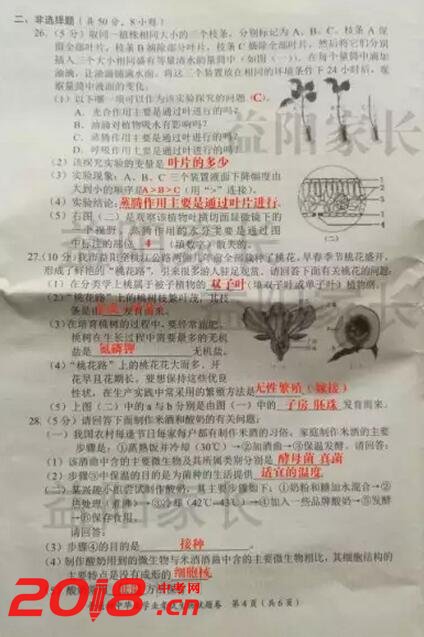 二、非选择题（共50分，8小题）
26.（5分）取同一植株相同大小的三个枝条，分别标记为A、B、C。枝条A保
留全部叶片，枝条B摘除部分叶片，枝条C摘除全部叶片，然后将它们分别
插入三个大小相同盛有等量清水的量筒中（如图（一））。在每个量筒中滴加
油滴，让油滴铺满水面。将这三个装置放在相同的环境条件下24小时后，观
察量筒中液面的变化。
（1）以下哪一项可以作为该实验探究的问题（C）。
A. 光合作用主要是通过叶进行的吗？
B. 油滴对植物吸水有影响吗？
C. 蒸腾作用主要是通过叶进行的吗？
D. 呼吸作用主要是通过叶进行的吗？
（2）该探究实验的变量是 叶片的多少
（3）实验现象：A、B、C三个装置液面下降幅度由
大到小的顺序是A>B>C（用“>”连接）。
（4）实验结论：蒸腾作用主要是通过叶片进行.
（5）右图（二）是观察该植物叶横切面显微镜下的
一个视野，蒸腾作用的水分主要是通过图
中标注的部位 4 （填数字）散失的。
（二）
27.（10分）
形成了鲜艳的“桃花路”，引来很多游人驻足观赏。请回答下面有关桃花的问题:
（1）在分类学上桃属于被子植物的 双子叶（填双子叶或单子叶）植物纲。
（2）“桃花路”上的桃树枝繁叶茂，其枝
条是由
（3）在培育桃树的过程中，要经常施肥。
桃树在生长过程中需要最多的无机
盐是 氮磷钾 无机盐。
（4）“桃花路”上的桃花花大而多、开
花早且花期长。要想保持这些优良
性状，在生产实践中常采用的繁殖方法是无性繁殖（嫁接）
（5）上图（二）中的a与b分别是由图（一）中的 子房 胚珠 发育而来。
28.（5分）请回答下面制作米酒和酸奶的有关问题：
（一）我国农村每逢节日每家每户都有制作米酒的习俗。家庭制作米酒的主要
步骤是：①蒸熟饭并冷却（30℃）→②加酒曲→③保温发酵。请回答：
（1）该酒曲中含的主要微生物及其所属类别分别是 酵母菌 真菌
（2）步骤③中保温的目的是为菌种的生活提供 适宜的温度.
（二）某兴趣小组尝试制作酸奶，其主要步骤如下：①奶粉和糖加水混合→②
热处理（煮沸）→③冷却（42℃–43℃）→④加入一些品牌酸奶→⑤发酵
→⑥保存食用。
请回答：
（3）步骤④的目的是 接种
（4）制作酸奶用到的微生物与米酒酒曲中含的主要微生物相比，其细胞结构的
主要特点是没有成形的 细胞核
第4页（共6页）
益阳家长
益阳家长
益阳家长
2018.cn
中考网